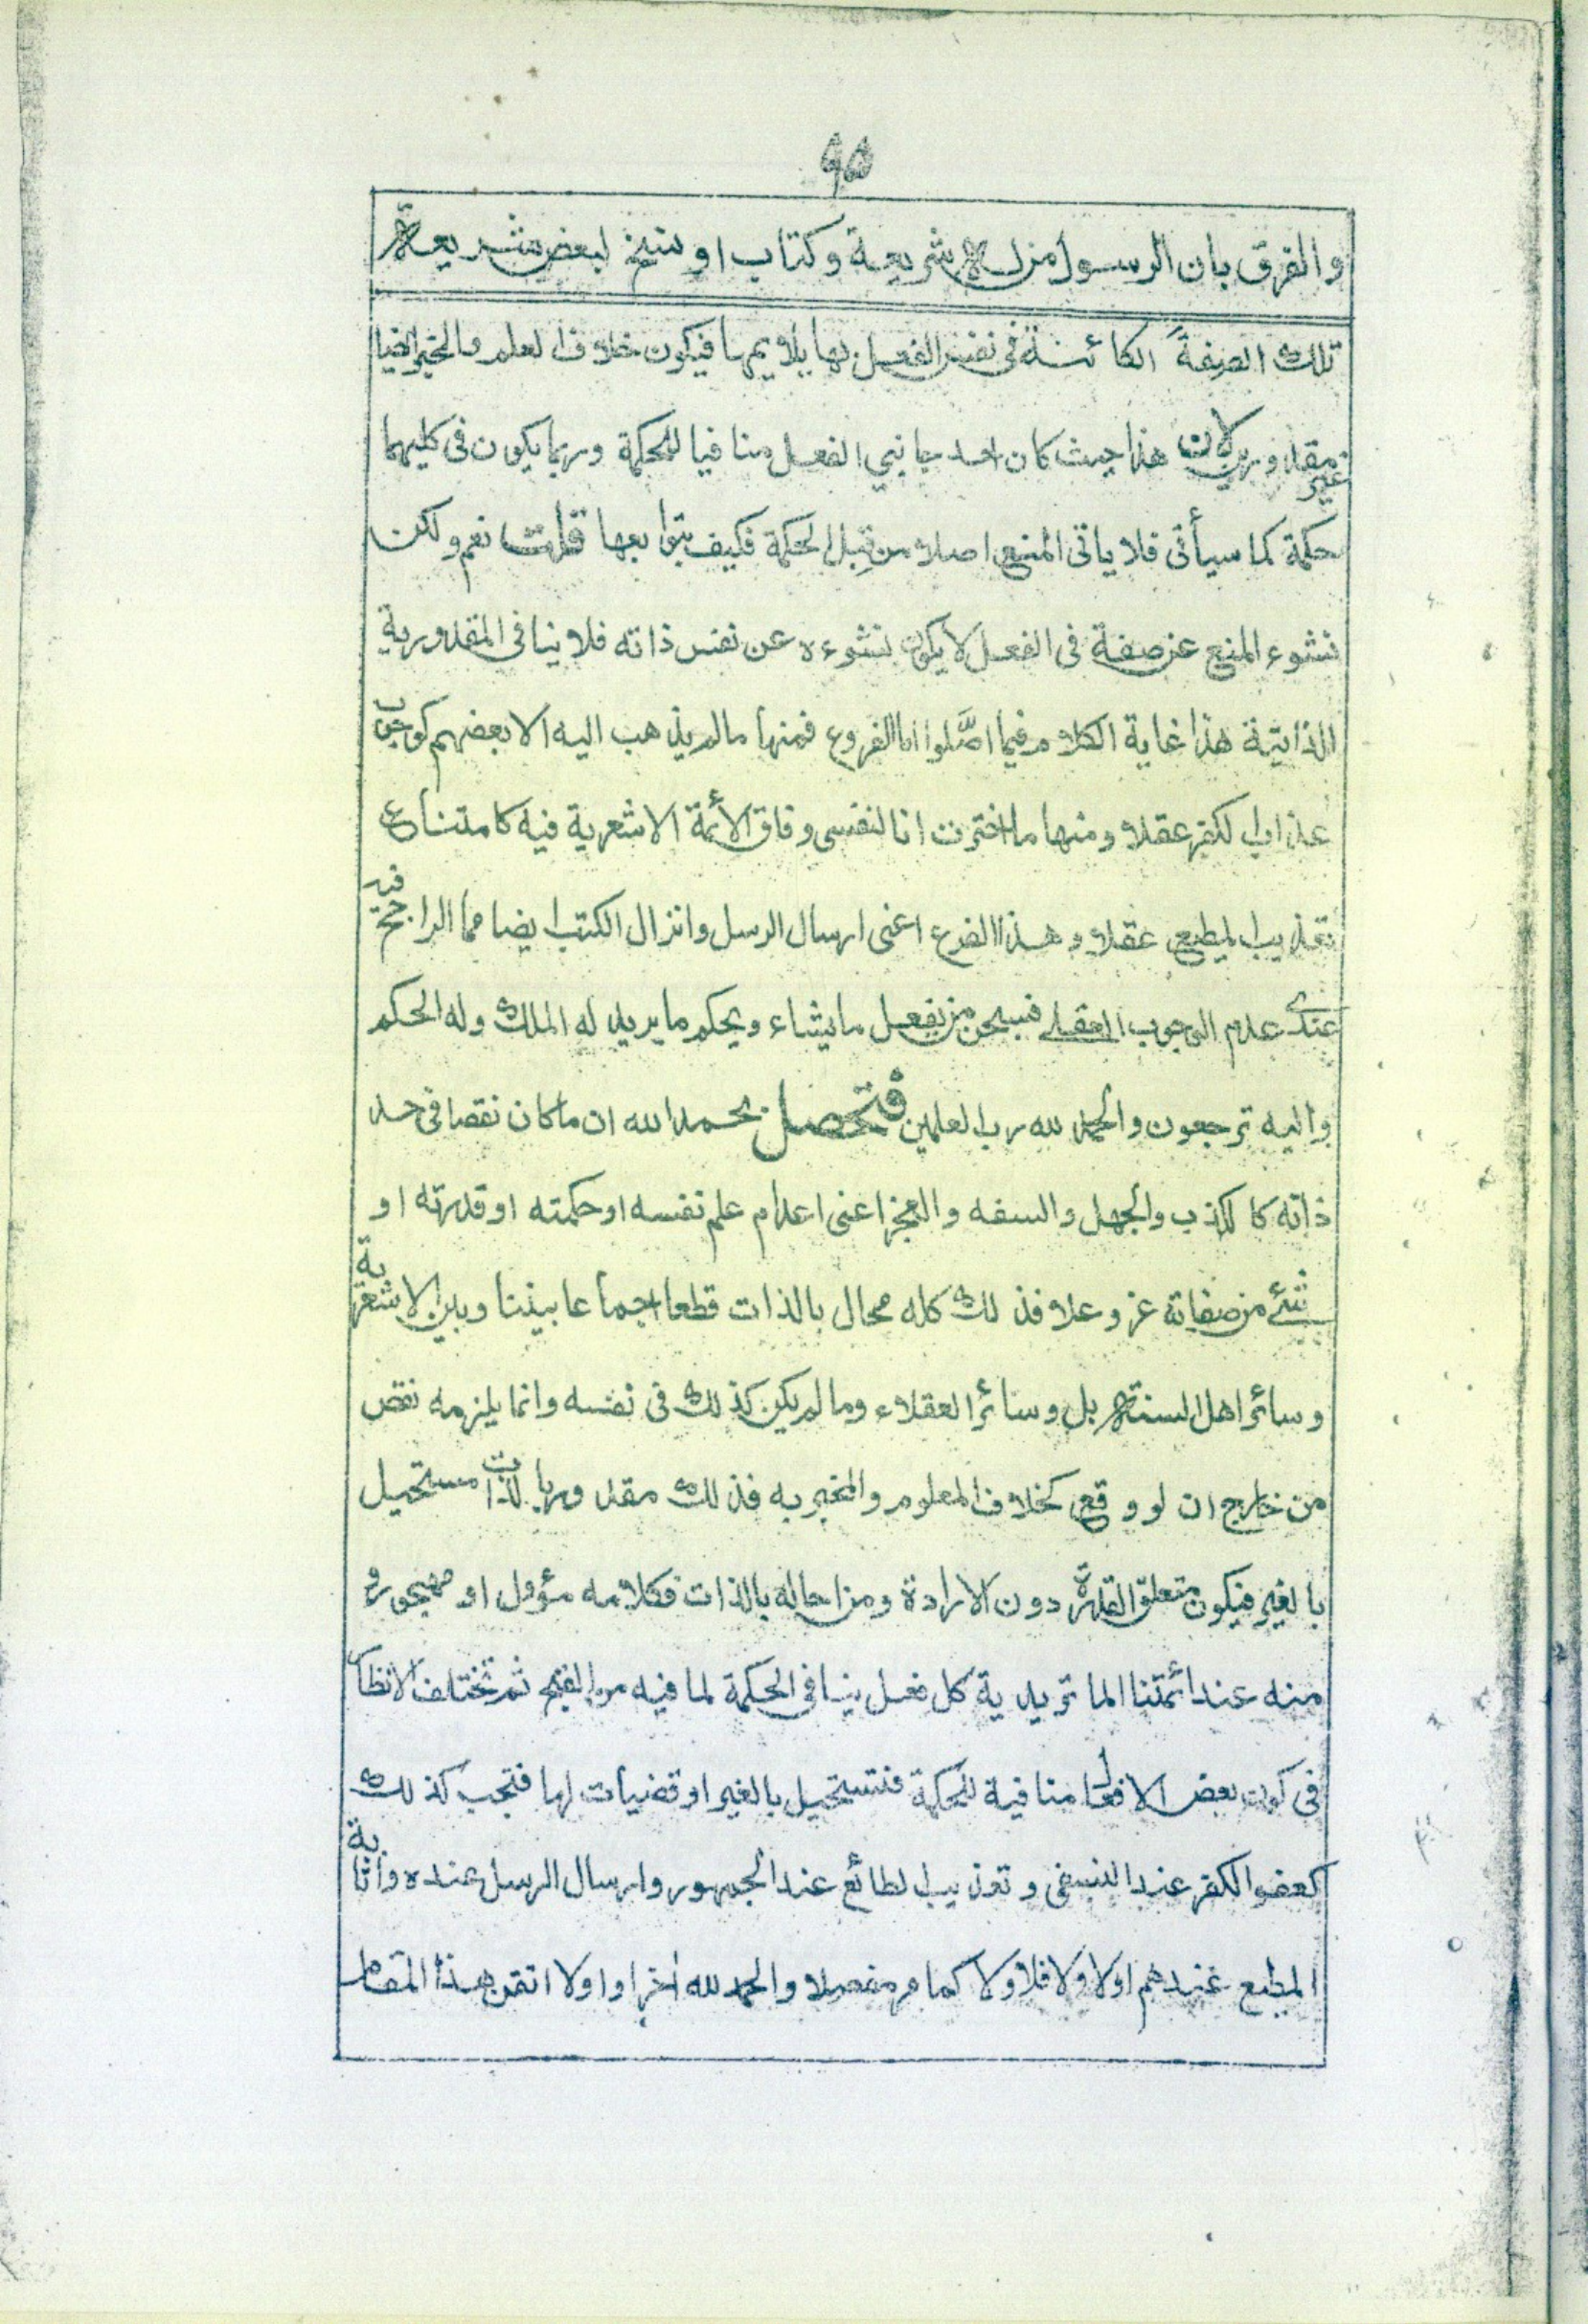 ٩٥
والفرق بان الرسول من له شريعة وكتاب او نسخ لبعض شريعة
تلك الصفة الكائنة في نفس الفعل بها يلايمها فيكون خلاف العلم والخبر ايضا
غير مقدور لان هذا حيث كان احد جانبي الفعل منافيا للحكمة وربما يكون في كليهما
حكمة كما سيأتي فلا ياتي المنع اصلا من قِبل الحكمة فكيف بتوابعها قلت نعم ولكن
نشوء المنع عن صفة في الفعل لا يكون نشوءه عن نفس ذاته فلا ينافي المقدورية
الذاتية هذا غاية الكلام فيما اصَّلوا اما الفروع فمنها ما لم يذهب اليه الا بعضهم كوجوب
عذاب الكفر عقلا ومنها ما اخترت انا لنفسي وفاق الأئمة الاشعرية فيه كامتناع
تعذيب المطيع عقلا وهذا الفرع اعني ارسال الرسل وانزال الكتب ايضا مما الراجح فيه
عندي عدم الوجوب العقلي فسبحن من يفعل ما يشاء ويحكم ما يريد له الملك وله الحكم
واليه ترجعون والحمد لله رب العلمين فتحصل بحمد الله ان ما كان نقصا في حد
ذاته كالكذب والجهل والسفه والعجز اعني اعدام علم نفسه او حكمته او قدرته او
شئ من صفاته عز وعلا فذلك كله محال بالذات قطعا اجماعا بيننا وبين الاشعرية
وسائر اهل السنة بل وسائر العقلاء وما لم يكن كذلك في نفسه وانما يلزمه نقص
من خارج ان لو وقع كخلاف المعلوم والمخبر به فذلك مقدور بالذات مستحيل
بالغير فيكون متعلق القدرة دون الارادة ومن احاله بالذات فكلامه مؤول او مهجور و
منه عند ائمتنا الماتريدية كل فعل ينافي الحكمة لما فيه من القبح ثم تختلف الانظار
في كون بعض الافعال منافية للحكمة فتستحيل بالغير او قضيات لها فتجب كذلك
كعفو الكفر عند النسفي وتعذيب الطائع عند الجمهور وارسال الرسل عنده واثابة
المطيع عندهم اولا ولا فلا ولا كما مر مفصلا والحمد لله اخرا واولا اتقن هذا المقام